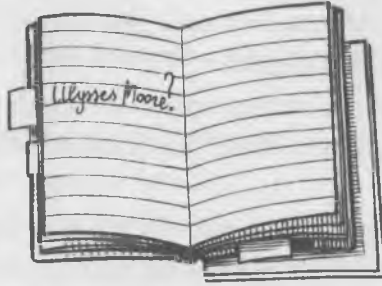 Ulysses Moore?